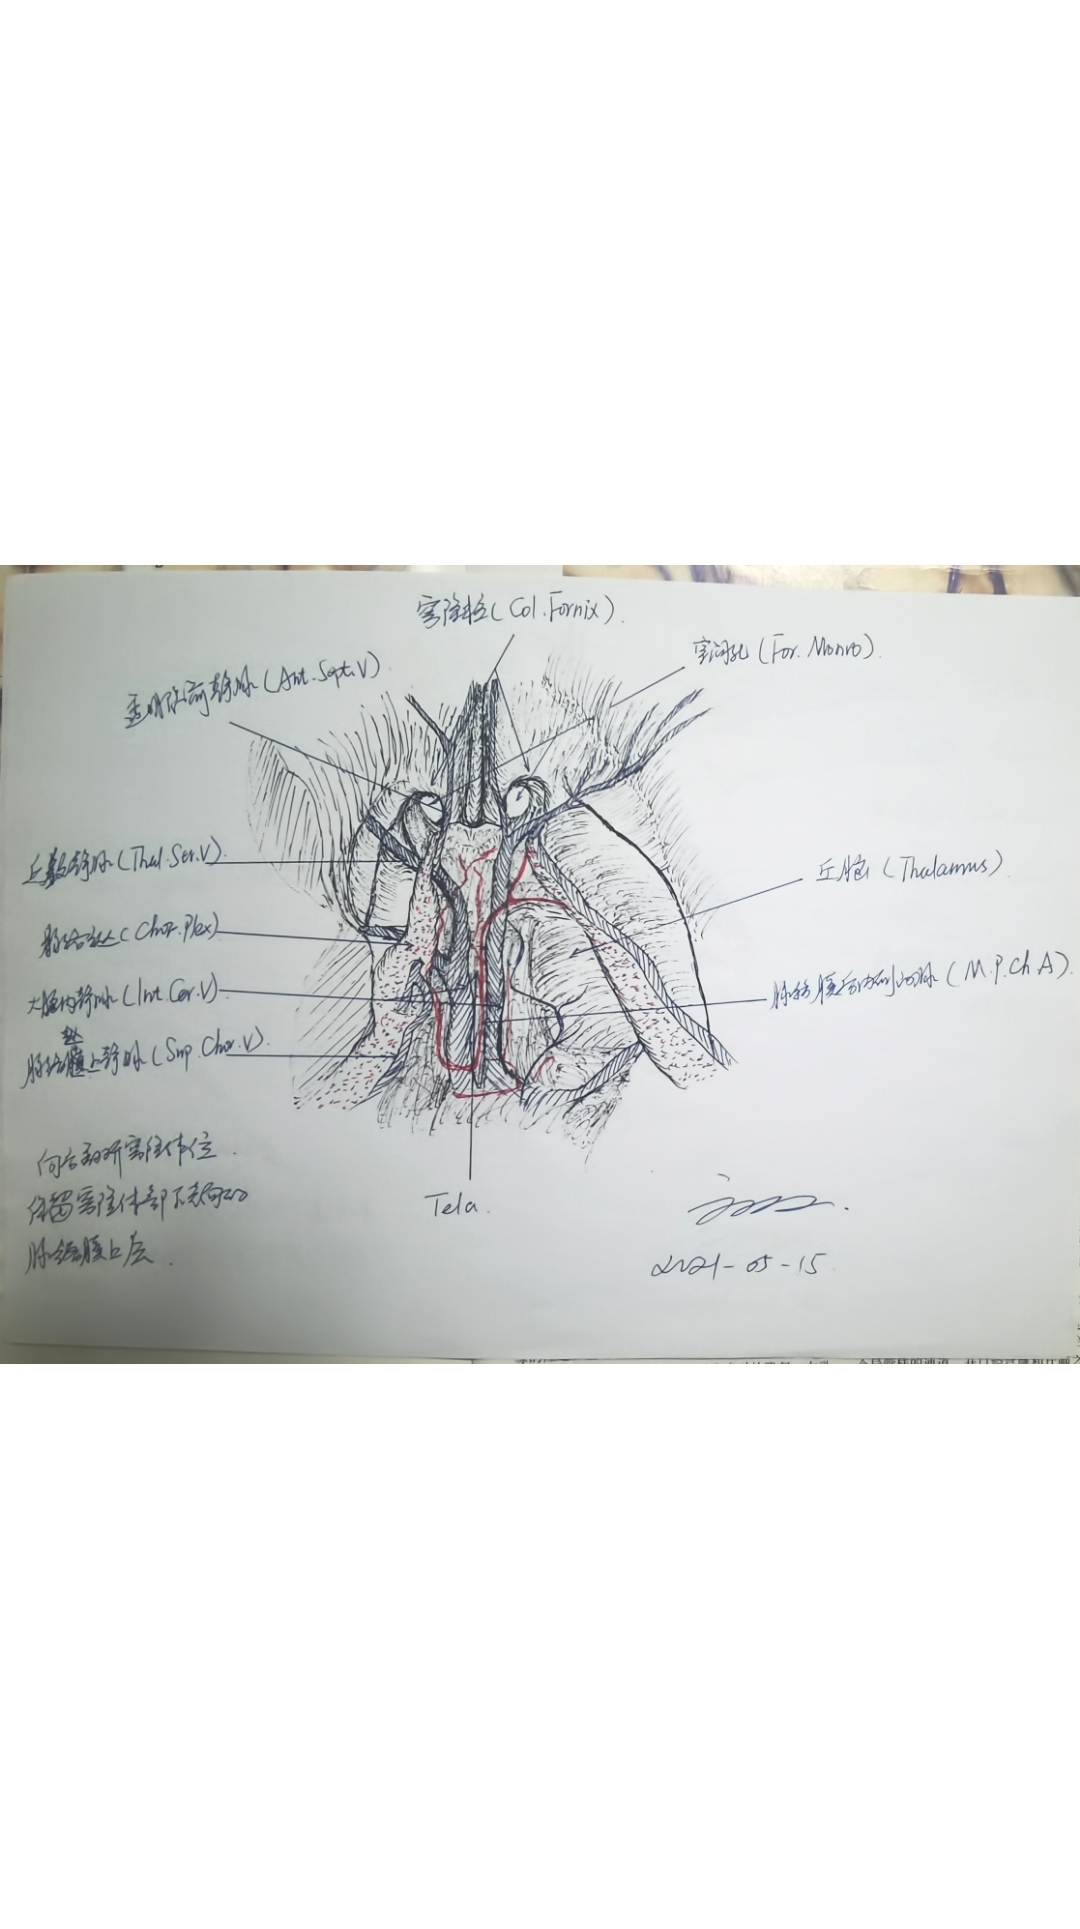 穹隆柱(Col.Fornix).
室间孔(For.Monro).
透明隔前静脉(Ant.Sept.V).
丘纹静脉(Thal.Str.V).
丘脑(Thalamus)
脉络丛(Chor.Plex)
大脑内静脉(Int.Cer.V).
(M.P.Ch.A).
上静脉(Sup.Chor.V).
向后翻开穹隆体位.
保留穹隆体部下方的
脉络膜上层.
Tela.
2021-05-15